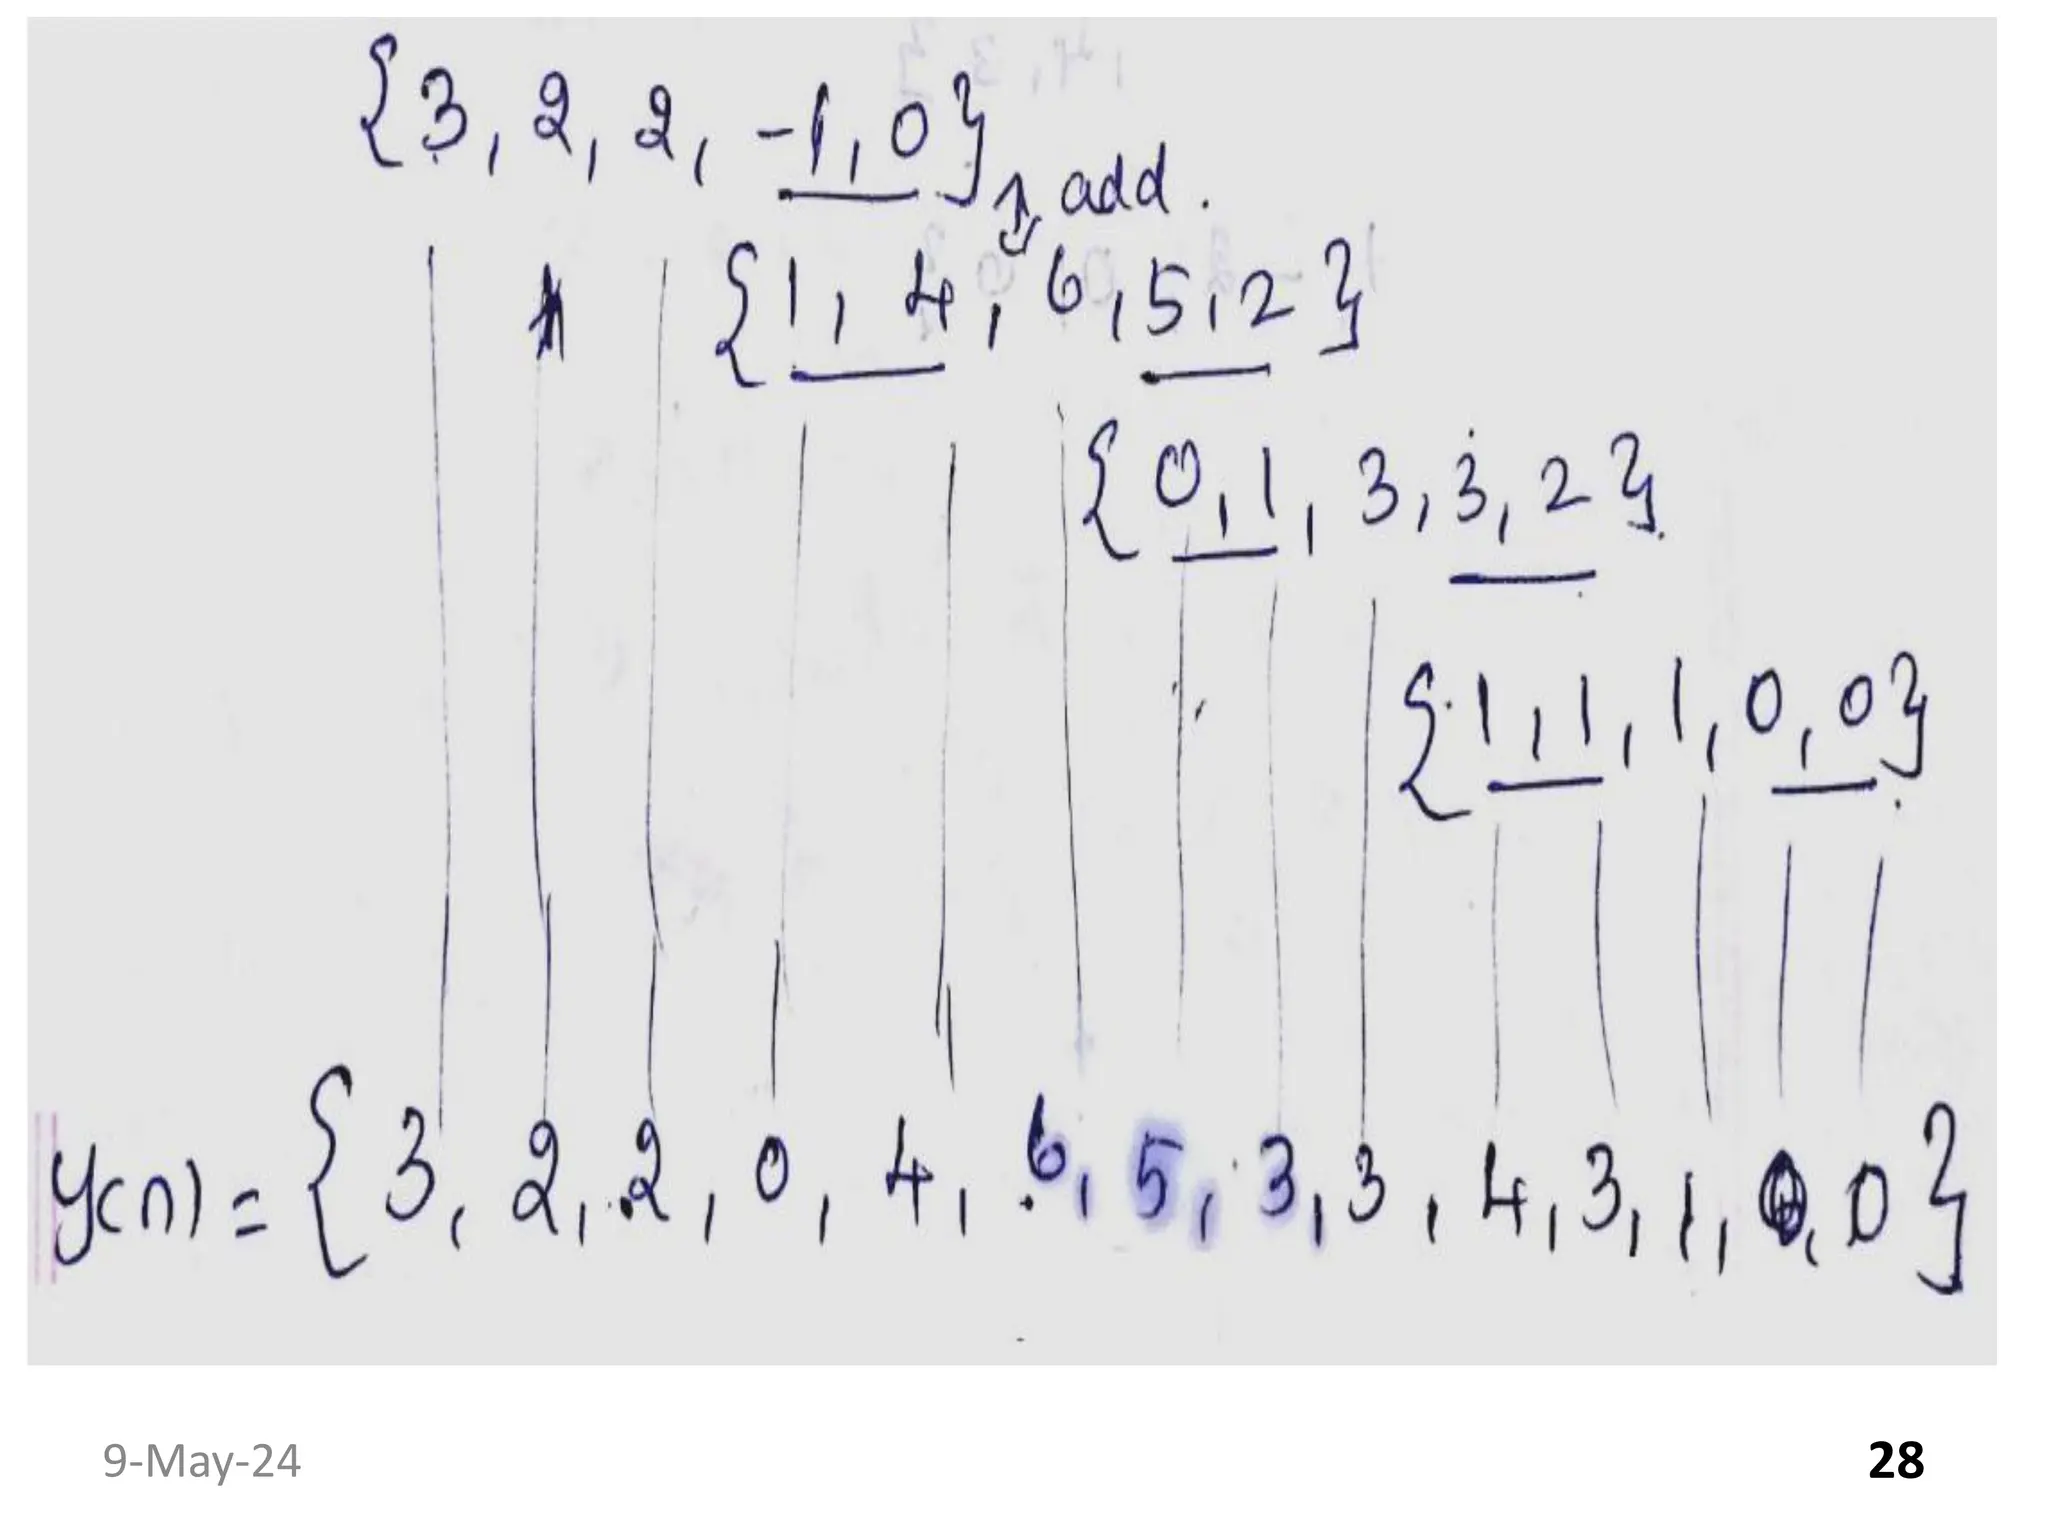 {3, 2, 2, -1, 0}
add.
{1, 4, 6, 5, 2}
{0, 1, 3, 3, 2}
{1, 1, 1, 0, 0}
y(n) = {3, 2, 2, 0, 4, 6, 5, 3, 3, 4, 3, 1, 0, 0}
9-May-24
28